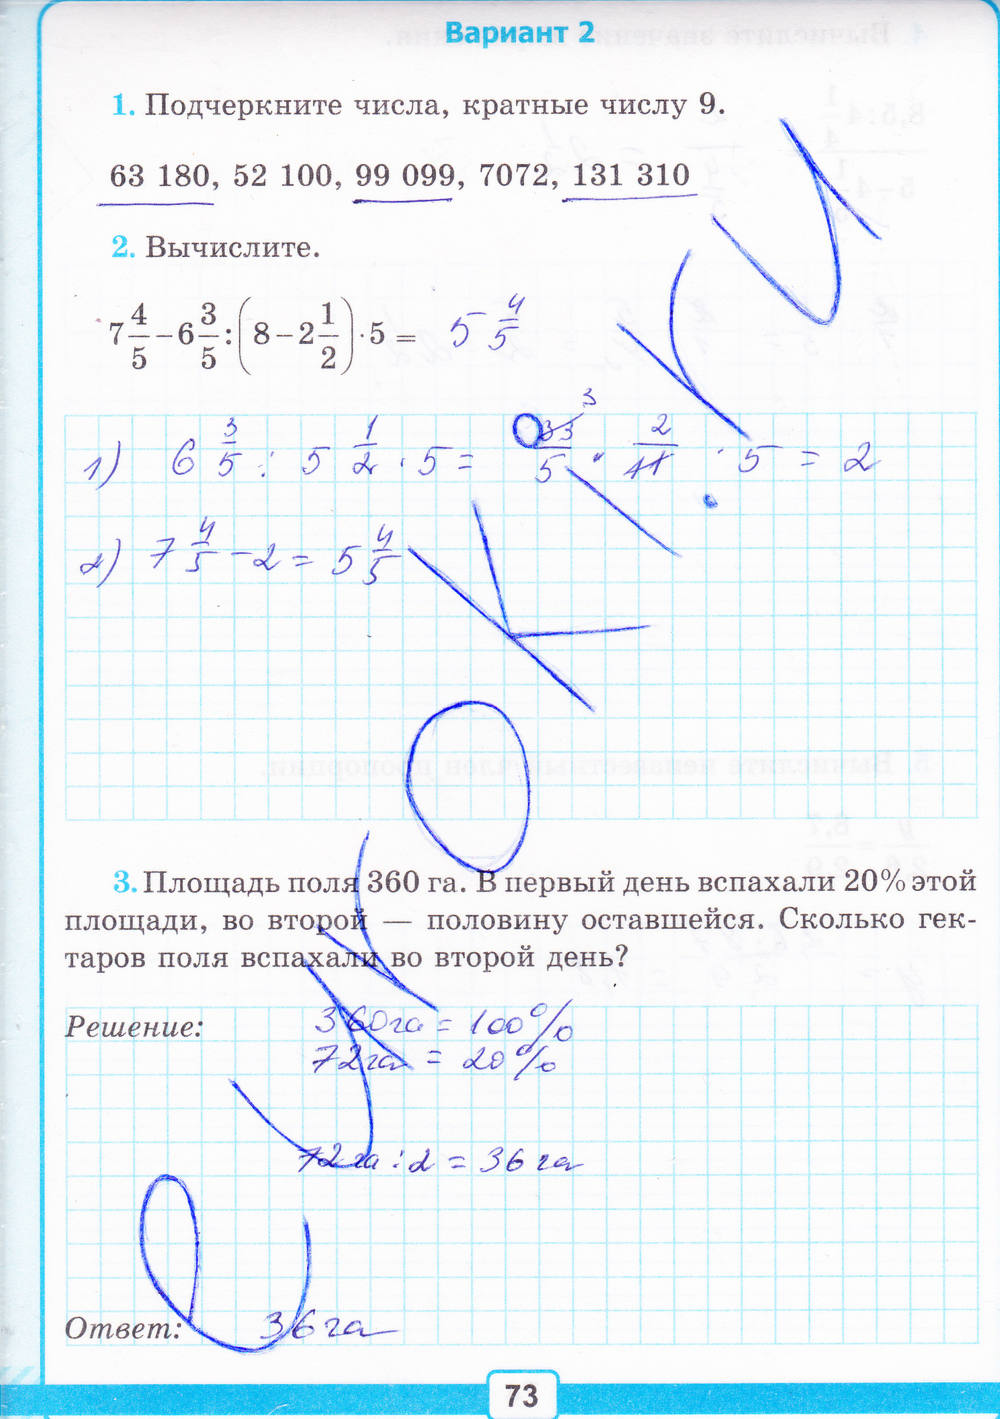 Вариант 2
1. Подчеркните числа, кратные числу 9.
63 180, 52 100, 99 099, 7072, 131 310
2. Вычислите.
7 4/5 − 6 3/5 : (8 − 2 1/2) · 5 = 5 4/5
1) 6 3/5 : 5 1/2 · 5 = 33/5 · 2/11 · 5 = 2
3
2) 7 4/5 − 2 = 5 4/5
3. Площадь поля 360 га. В первый день вспахали 20% этой
площади, во второй — половину оставшейся. Сколько гек-
таров поля вспахали во второй день?
Решение: 360 га = 100%
72 га = 20%
72 га : 2 = 36 га
Ответ: 36 га
73